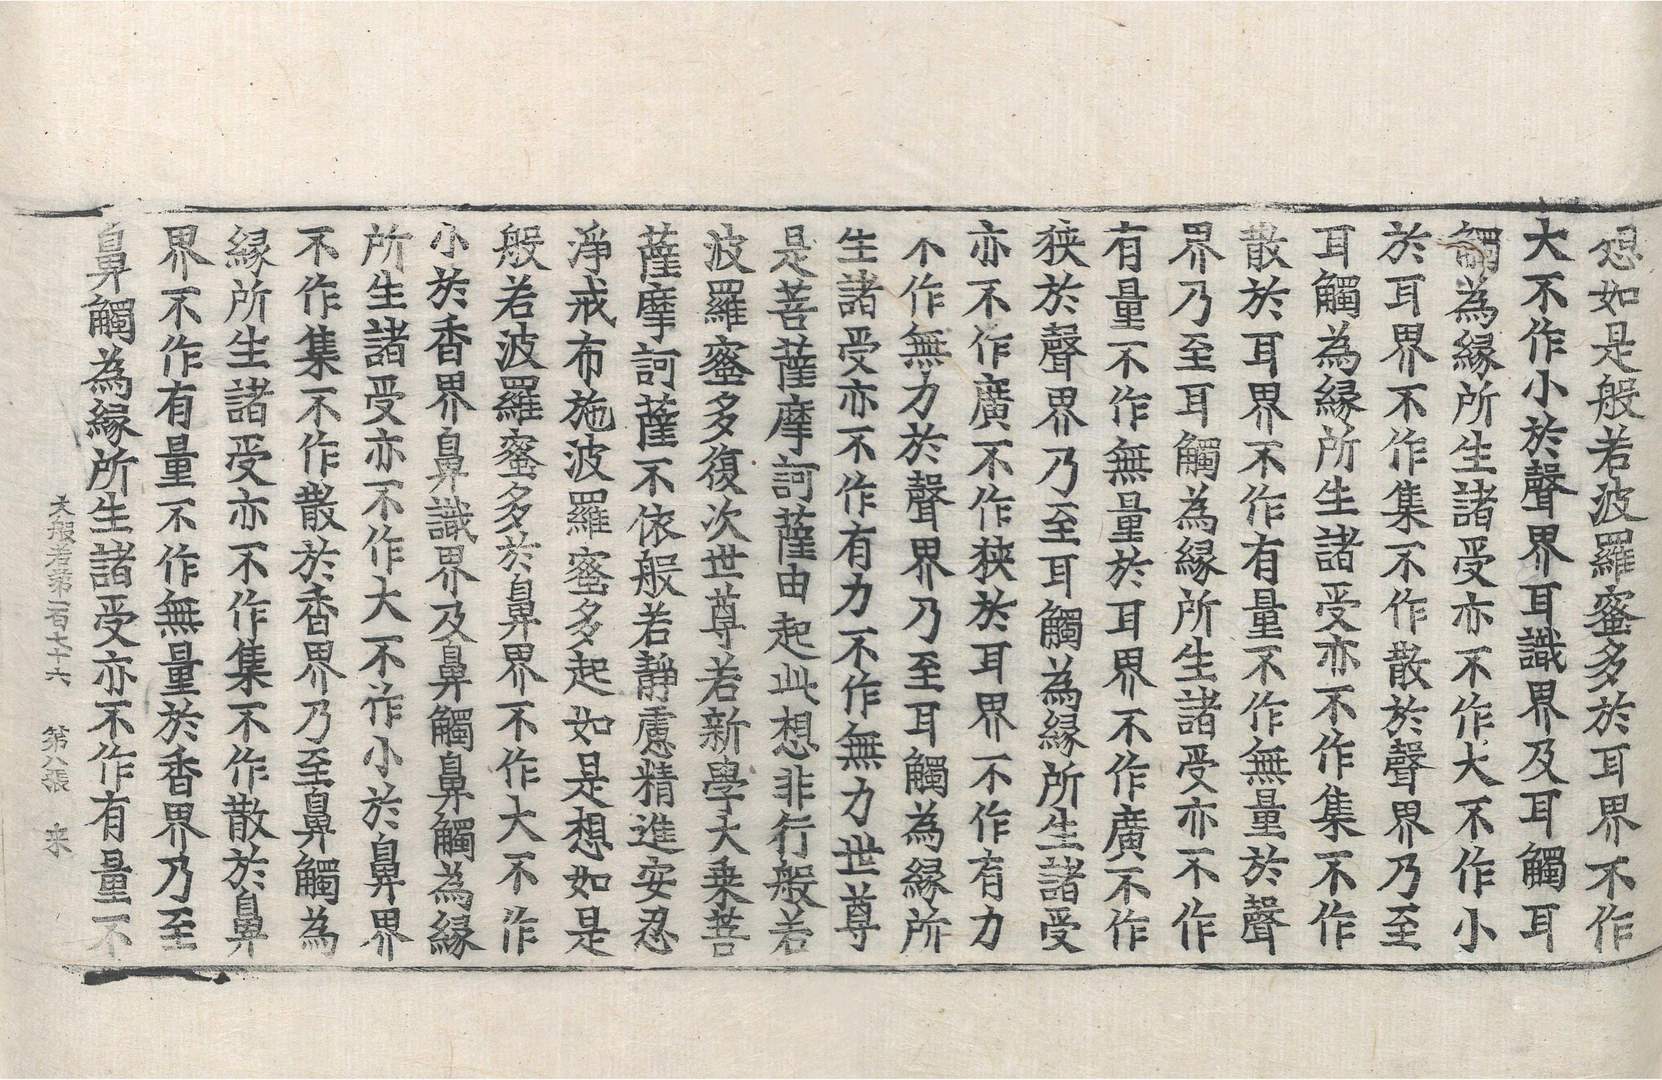 想如是般若波羅蜜多於耳界不作
大不作小於聲界耳識界及耳觸耳
觸為緣所生諸受亦不作大不作小
於耳界不作集不作散於聲界乃至
耳觸為緣所生諸受亦不作集不作
散於耳界不作有量不作無量於聲
界乃至耳觸為緣所生諸受亦不作
有量不作無量於耳界不作廣不作
狹於聲界乃至耳觸為緣所生諸受
亦不作廣不作狹於耳界不作有力
不作無力於聲界乃至耳觸為緣所
生諸受亦不作有力不作無力世尊
是菩薩摩訶薩由起此想非行般若
波羅蜜多復次世尊若新學大乗菩
薩摩訶薩不依般若靜慮精進安忍
淨戒布施波羅蜜多起如是想如是
般若波羅蜜多於鼻界不作大不作
小於香界鼻識界及鼻觸鼻觸為緣
所生諸受亦不作大不作小於鼻界
不作集不作散於香界乃至鼻觸為
緣所生諸受亦不作集不作散於鼻
界不作有量不作無量於香界乃至
鼻觸為緣所生諸受亦不作有量不
大般若第一百七十六 第八張 来